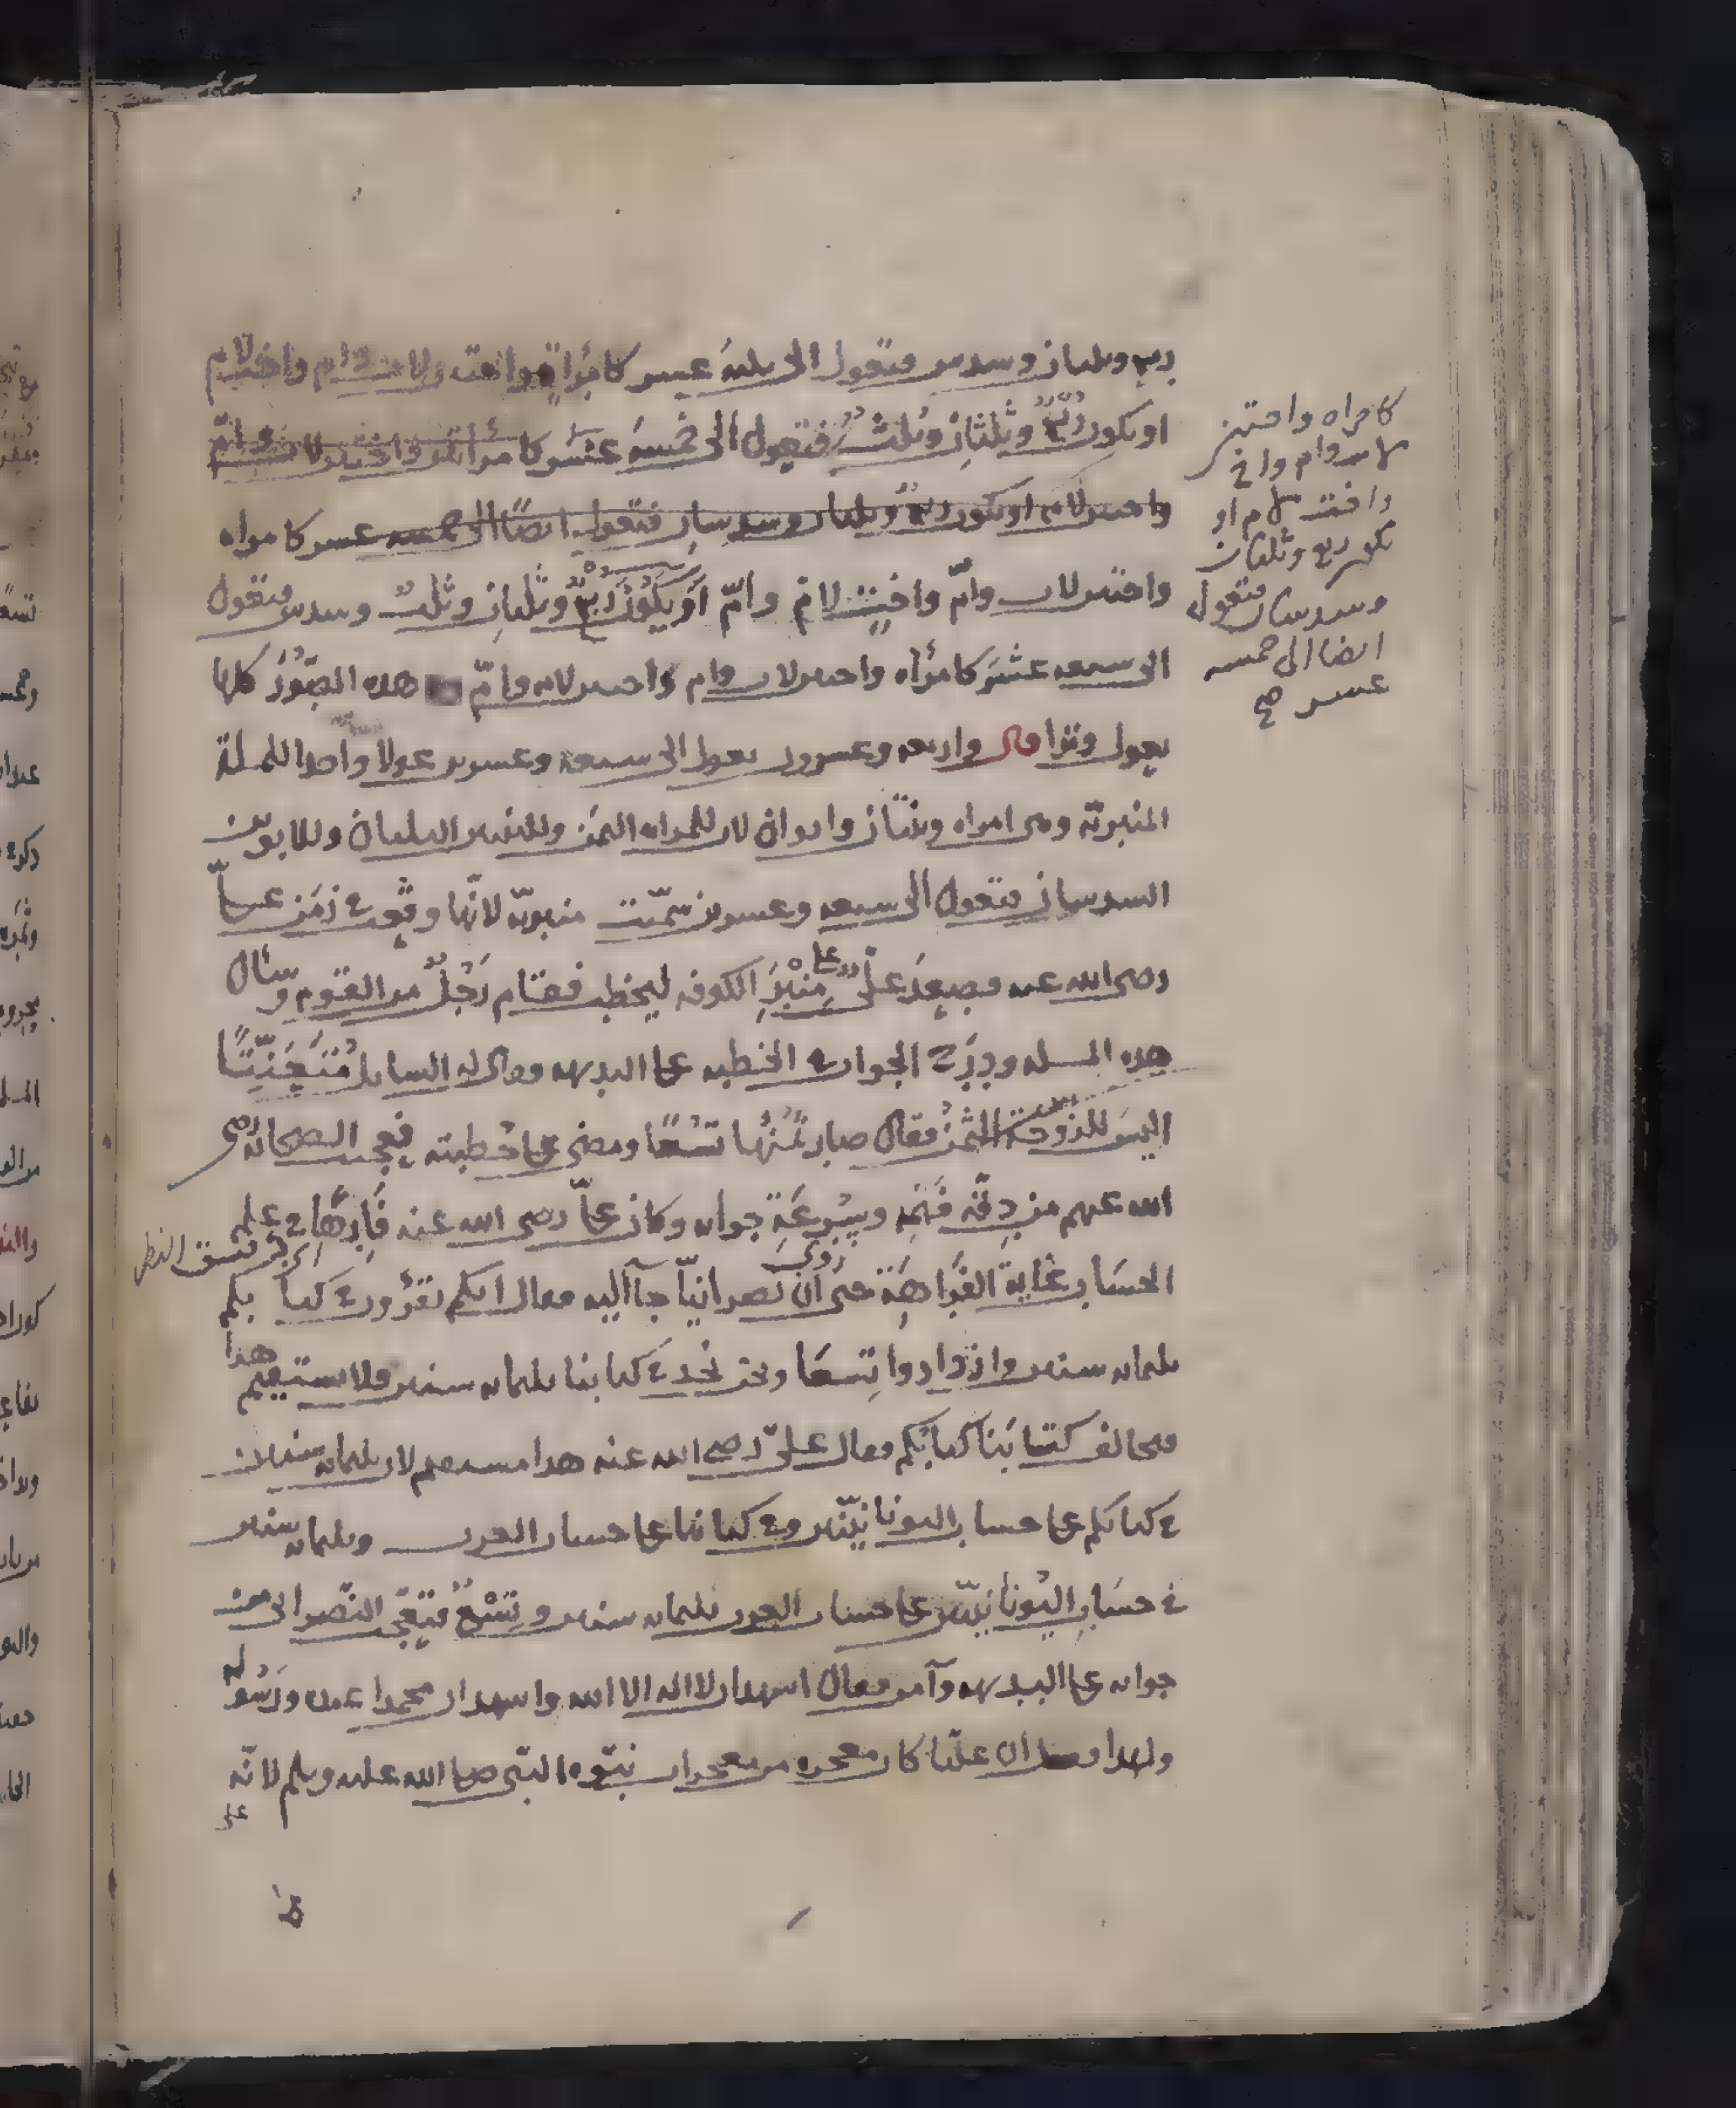 ربع وثلثان وسدس فتعول الى ثلثة عشر كامرأة واخت لاب وام واخت لام
او يكون ربع وثلثان وثلث فتعول الى خمسة عشر كامرأة واختين لاب وام
واختين لام او يكون ربع وثلثان وسدسان فتعول ايضًا الى خمسة عسر كامراه
واختين لاب وامّ واختٍ لامّ وامّ او يكونُ ربعٌ وثلثانِ وثلث وسدس فتعول
الى سبعه عشَر كامرأه واختين لاب وام واختين لام وامّ هذه الصُّوَرُ كلها
بعول وترا قال واربعه وعسرون بعول الى سبعة وعسرين عولا واحدا المسلة
المنبريّة وهى امراه وبنتان وابوان لان للمراه الثمن وللبنتين الثلثان وللابوين
السدسان فتعول الى سبعه وعسرين سمّيت منبريّة لانّها وقعت فى زمن علىّ
رضى الله عنه فصعِدَ علىٌّ على مِنْبَرِ الكوفه ليخطب فقام رَجُلٌ من القوم وسأل
هذه المسله ودَرَج الجواب فى الخطبه على البديهه وقال له السايل مُتَعَنِّتًا
اليسَ للزوجة الثمنُ فقال صار ثُمُنُها تسعًا ومضى على خطبته فعجب الصحابه رضى
الله عنهم من دِقّة فَهمِه وسُرعَةِ جوابه وكان علىّ رضى الله عنه فَارِهًا فى علم
الحسَاب غاية الفَراهَة حتى رُوِىَ ان نصرانيّا جآ اليه فقال انكم تقرؤن فى كتابكم
ثلثمائه سنين وازدادوا تِسعًا ونحن نجد فى كتابنا ثلثمائه سنين فلا يستقيم هذا
فخالف كتابَنا كتابُكم فقال علىّ رضى الله عنه هذا مستقيم لان ثلثمائه سنين
فى كتابكم على حساب اليونانيّين وفى كتابنا على حساب العرب وثلثمائه سنين
فى حسَابِ اليُونانيّين على حساب العرب ثلثمائه سنين وتِسْعٌ فتعجّب النّصرانى من
جوابه على البديهه وآمن فقال اشهد ان لا اله الا الله واشهد ان محمدا عبده ورَسُوله
ولهذا قيل ان عليّا كان معجزه من معجزات نبوّه النبّى صلى الله عليه وسلم لانّه
كامراه واختين
لاب وام واخ
واخت لام او
يكون ربع وثلثان
وسدسان فتعول
ايضا الى خمسه
عسر صح